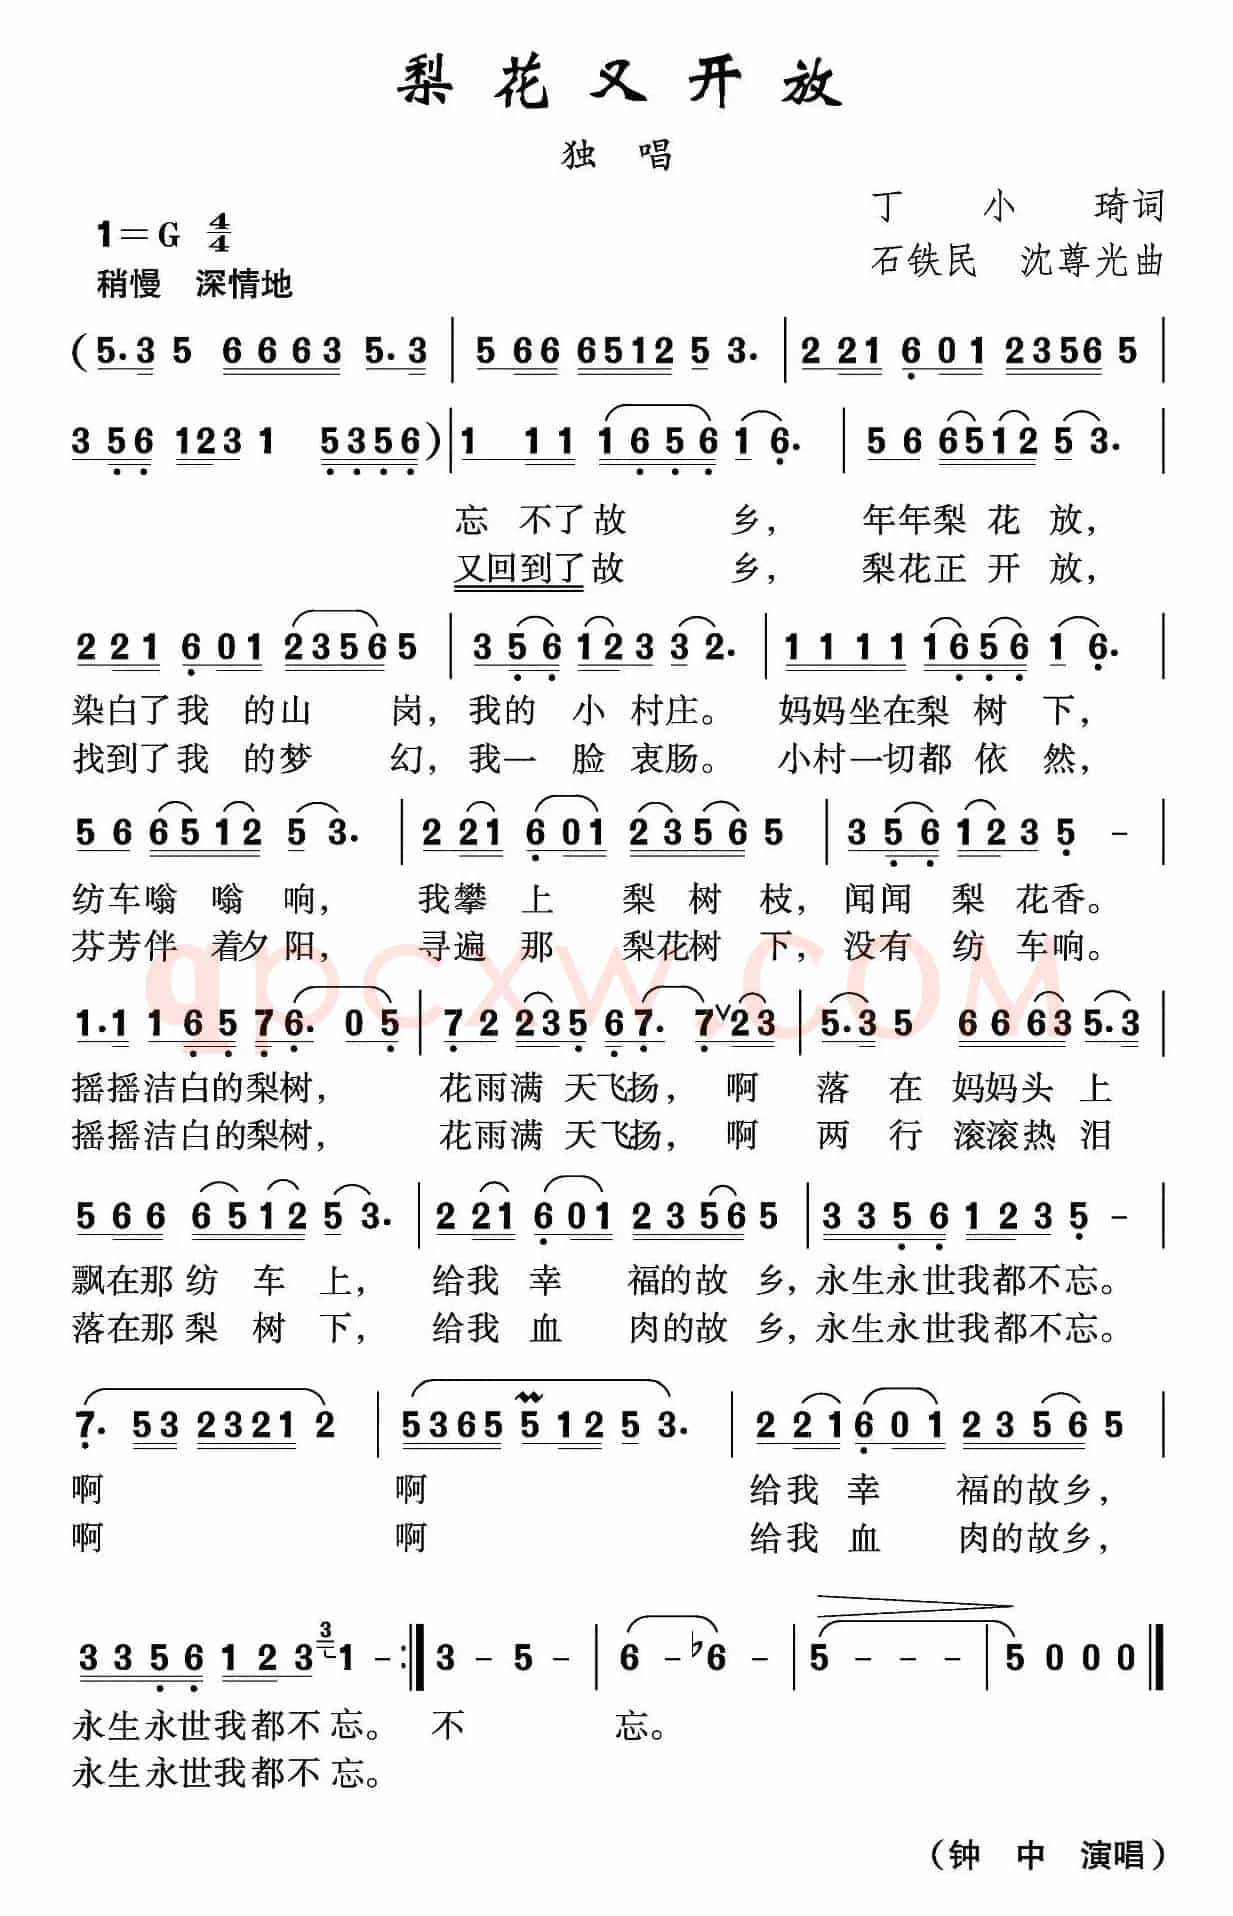 梨花又开放
独 唱
丁 小 琦词
1=G 4/4
石铁民 沈尊光曲
稍慢 深情地
(5.3 5 6 6 6 3 5.3 | 5 66 6512 5 3. | 2 21 6 01 2356 5 |
3 56 123 1 5356)| 1 11 1656 1 6. | 5 6 6512 5 3. |
忘 不了故 乡, 年年梨 花 放,
又回到了故 乡, 梨花正 开 放,
2 21 6 01 2356 5 | 3 56 123 3 2. | 1 1 1 1 1656 1 6. |
染白了我 的山 岗, 我的 小 村庄。 妈妈坐在梨 树 下,
找到了我 的梦 幻, 我一 脸 衷肠。 小村一切都 依 然,
5 6 6512 5 3. | 2 21 6 01 2356 5 | 3 56 123 5 - |
纺车嗡 嗡 响, 我攀 上 梨 树 枝, 闻闻 梨 花香。
芬芳伴 着夕 阳, 寻遍 那 梨花树 下, 没有 纺 车响。
qpcxw.COM
1.1 1 6 5 7 6. 0 5 | 7 2 23 5 6 7. 7 V 23 | 5.3 5 6 6 6 3 5.3 |
摇摇洁白的梨树, 花雨满 天飞扬, 啊 落 在 妈妈头 上
摇摇洁白的梨树, 花雨满 天飞扬, 啊 两 行 滚滚热 泪
5 66 6512 5 3. | 2 21 6 01 2356 5 | 3 3 5 6 1 2 3 5 - |
飘在那 纺 车 上, 给我 幸 福的故 乡, 永生永世我都不忘。
落在那 梨 树 下, 给我 血 肉的故 乡, 永生永世我都不忘。
7. 53 2321 2 | 5365 5 12 5 3. | 2 21 6 01 2356 5 |
啊 啊 给我 幸 福的故乡,
啊 啊 给我 血 肉的故乡,
3 3 5 6 1 2 3 3 1 - :| 3 - 5 - | 6 - ♭6 - | 5 - - - | 5 0 0 0 ||
永生永世我都不 忘。 不 忘。
永生永世我都不 忘。
(钟 中 演唱)